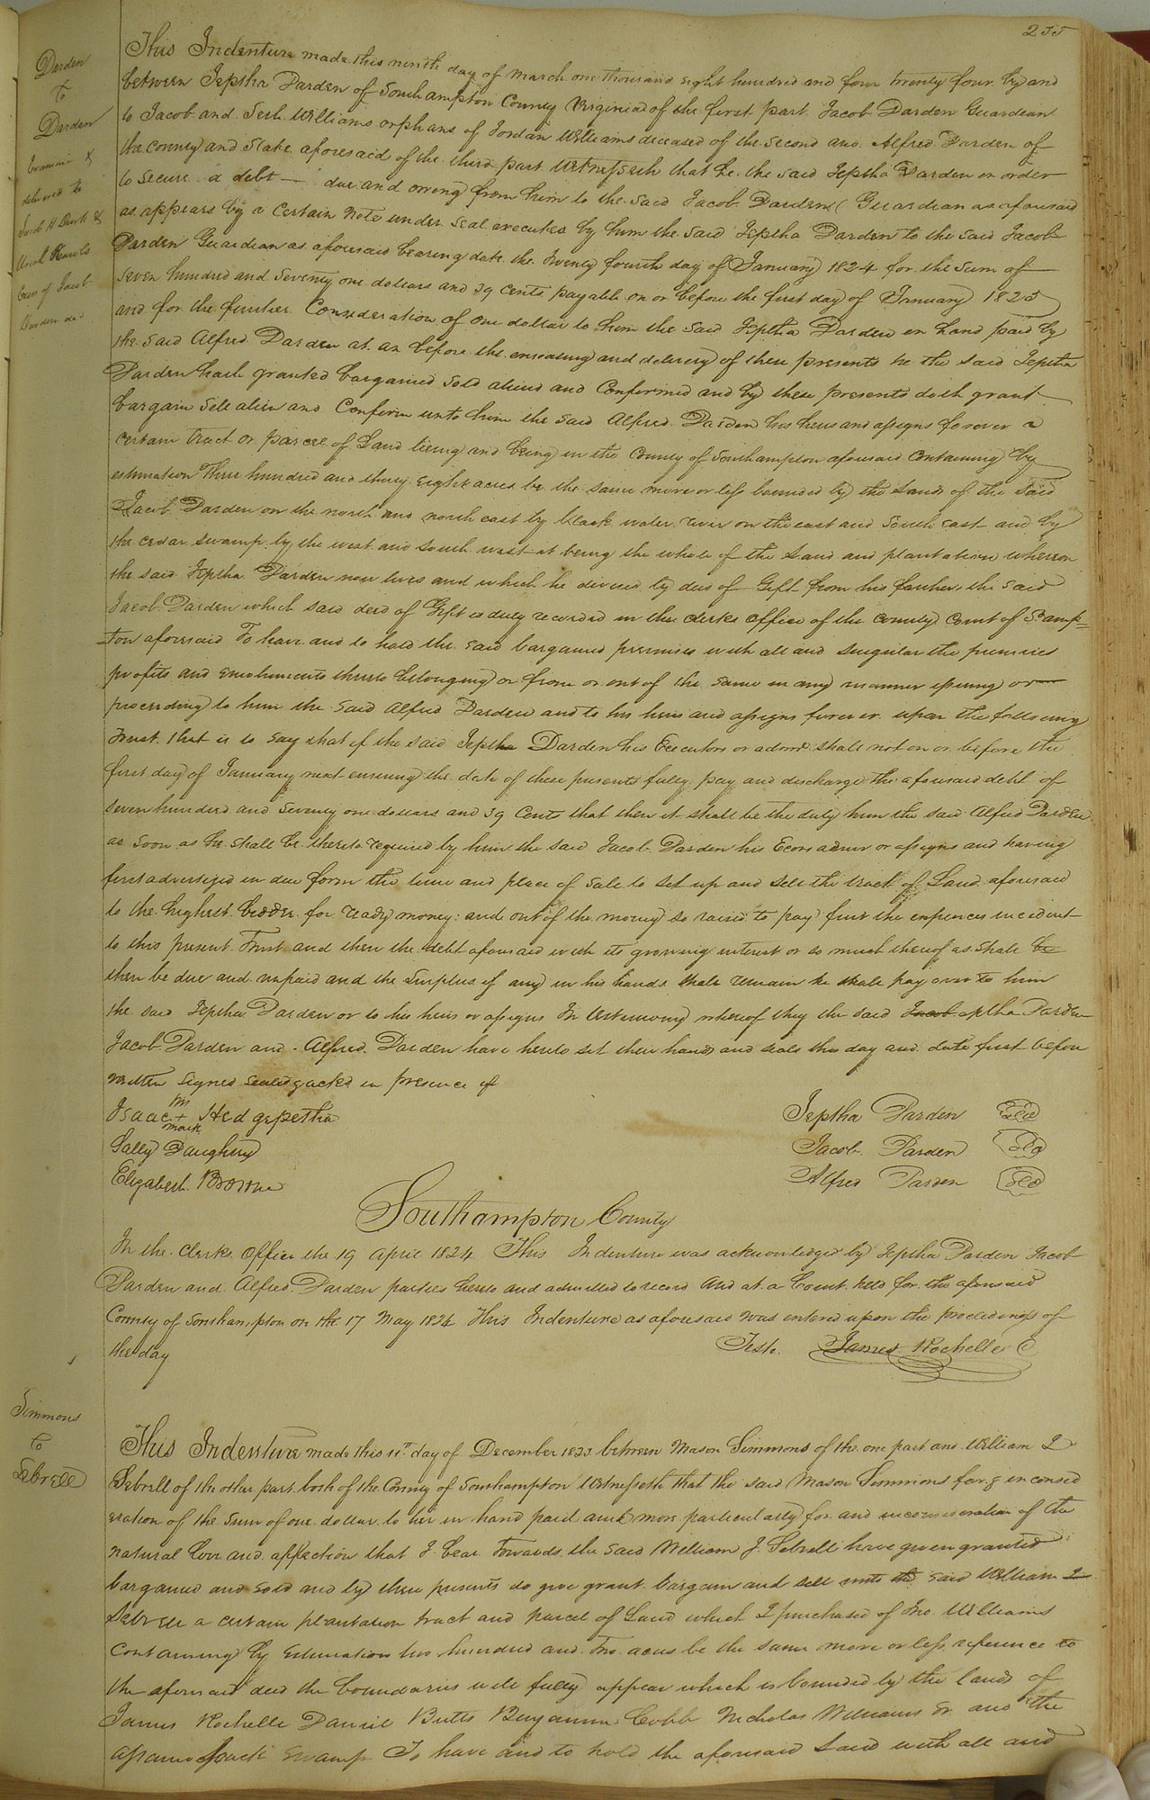 235
Darden
to
Darden
Examined &
delivered to
Jacob Darden decd
This Indenture made this ninth day of March one thousand eight hundred and four twenty four by and
between Jeptha Darden of Southampton County Virginia of the first part Jacob Darden Guardean
to Jacob and Seth Williams orphans of Jordan Williams deceased of the second and Alfred Darden of
the county and State aforesaid of the third part Witnesseth that he the said Jeptha Darden in order
to secure a debt — due and owing from him to the said Jacob Darden (Guardean as aforesaid
as appears by a certain note under seal executed by him the said Jeptha Darden to the said Jacob
Darden Guardian as aforesaid bearing date the twenty fourth day of January 1824 for the sum of
seven hundred and seventy one dollars and 39 cents payable on or before the first day of January 1825
and for the further Consideration of one dollar to him the said Jeptha Darden in hand paid by
the said Alfred Darden at an before the ensealing and delivery of these presents he the said Jeptha
Darden hath granted bargained sold aliend and Confermed and by these presents doth grant
bargain sell alien and Conferm unto him the said Alfred Darden his heirs and assigns forever a
certain tract or parcel of Land lieing and being in the County of Southampton aforesaid Containing by
estimation Three hundred and thirty eight acres be the same more or less bounded by the lands of the said
Jacob Darden on the north and north east by black water river on the east and south east and by
the cedar swamp by the west and south west it being the whole of the Land and plantation whereon
the said Jeptha Darden now lives and which he derived by deed of Gift from his farther, the said
Jacob Darden which said deed of Gift is duly recorded in the clerks office of the county Court of Samp=
ton aforesaid To have and to hold the said bargained premises with all and singular the premises
profits and emoluments thereto belonging or from or out of the same in any manner issuing or
proceeding to him the said Alfred Darden and to his heirs and assigns forever upon the following
trust that is to say that if the said Jeptha Darden his Executors or admrs shall not on or before the
first day of January next ensuing the date of these presents fully pay and discharge the aforesaid debt of
seven hundred and seventy one dollars and 39 Cents that then it shall be the duty him the said Alfred Darden
as soon as he shall be thereto required by him the said Jacob Darden his Ecors admr or assigns and having
first advertized in due form the time and place of sale to set up and sell the tract of Land aforesaid
to the highest bidder for ready money: and out of the money so raised to pay first the expences incident
to this present Trust and then the debt aforesaid with its growing interest or so much thereof as shall be
then be due and unpaid and the surplus if any in his hands shall remain he shall pay over to him
the said Jeptha Darden or to his heirs or assigns In testimony whereof they the said Jacob eptha Darden
Jacob Darden and Alfred Darden have hereto set their hands and seals the day and date first before
written signed sealed & ackd in presence of
Isaac + Hedgepetha
mark
Sally Daughtry
Elizabeth Browne
Jeptha Darden
Jacob Darden
Alfred Darden
Southampton County
In the Clerks Office the 19 April 1824 This Indenture was acknowledged by Jeptha Darden Jacob
Darden and Alfred Darden parties hereto and admitted to record And at a Court held for the aforesaid
County of Southampton on the 17 May 1824 This Indenture as aforesaid was entered upon the proceedings of
the day
Teste James Rochelle C
Simmons
to
Sebrell
This Indenture made this 11th day of December 1823 between Mason Simmons of the one part and William J
Sebrell of the other part both of the County of Southampton Witnesseth that the said Mason Simmons for & in consid
eration of the sum of one dollar to her in hand paid and more particularly for and in consideration of the
natural love and affection that I bear towards the said William J. Sebrell have given granted
bargained and sold and by these presents do give grant bargain and sell unto the said William J
Sebrell a certain plantation tract and parcel of Land which I purchased of Jno. Williams
Containing by Estimation two hundred and two acres be the same more or less, reference to
the aforesaid deed the boundaries will fully appear which is bounded by the lands of
James Rochelle Daniel Butts Benjamin Cobb Nicholas Williams Sr and the
swamp To have and to hold the aforesaid Land with all and